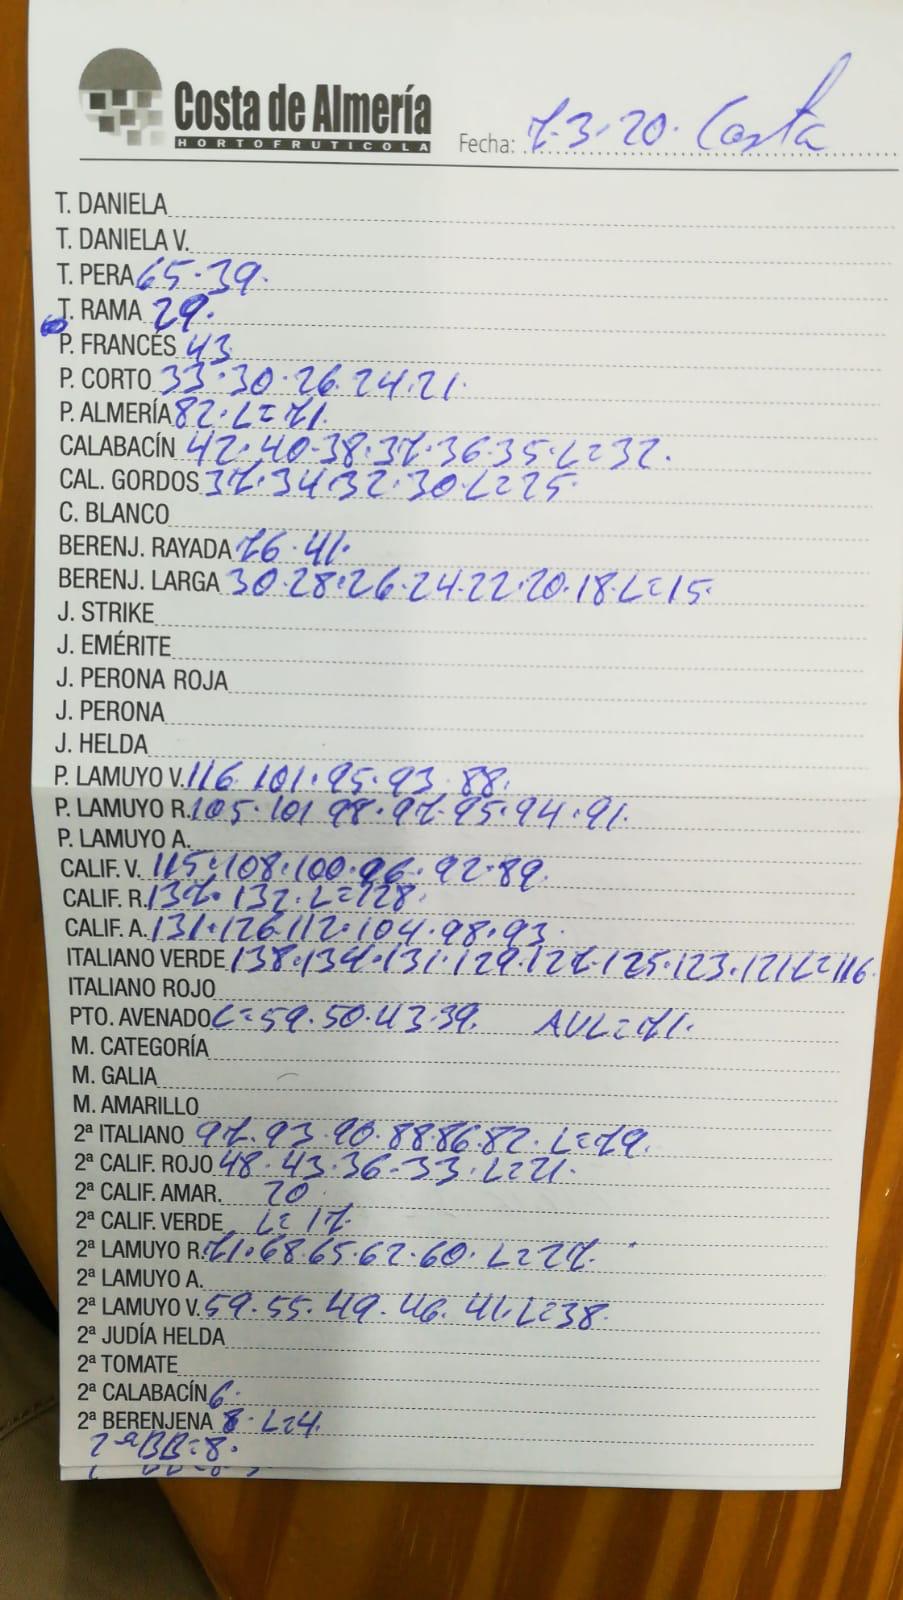 Costa de Almería
HORTOFRUTICOLA
Fecha: 7·3·20· Costa
T. DANIELA
T. DANIELA V.
T. PERA 65·39·
T. RAMA 29·
P. FRANCÉS 43
P. CORTO 33·30·26·24·21·
P. ALMERÍA 82·L=71·
CALABACÍN 42·40·38·37·36·35·L=32·
CAL. GORDOS 37·34·32·30·L=25·
C. BLANCO
BERENJ. RAYADA 76·41·
BERENJ. LARGA 30·28·26·24·22·20·18·L=15·
J. STRIKE
J. EMÉRITE
J. PERONA ROJA
J. PERONA
J. HELDA
P. LAMUYO V. 116·101·95·93·88·
P. LAMUYO R. 105·101·98·97·95·94·91·
P. LAMUYO A.
CALIF. V. 115·108·100·96·92·89·
CALIF. R. 137·132·L=128·
CALIF. A. 131·126·112·104·98·93·
ITALIANO VERDE 138·134·131·129·127·125·123·121L=116·
ITALIANO ROJO
PTO. AVENADO L=59·50·43·39· AVL=71·
M. CATEGORÍA
M. GALIA
M. AMARILLO
2ª ITALIANO 97·93·90·88·86·82·L=79·
2ª CALIF. ROJO 48·43·36·33·L=21·
2ª CALIF. AMAR. 20·
2ª CALIF. VERDE L=17·
2ª LAMUYO R. 71·68·65·62·60·L=27·
2ª LAMUYO A.
2ª LAMUYO V. 59·55·49·46·41·L=38·
2ª JUDÍA HELDA
2ª TOMATE
2ª CALABACÍN 6·
2ª BERENJENA 8·L=4·
2ªBB=8·